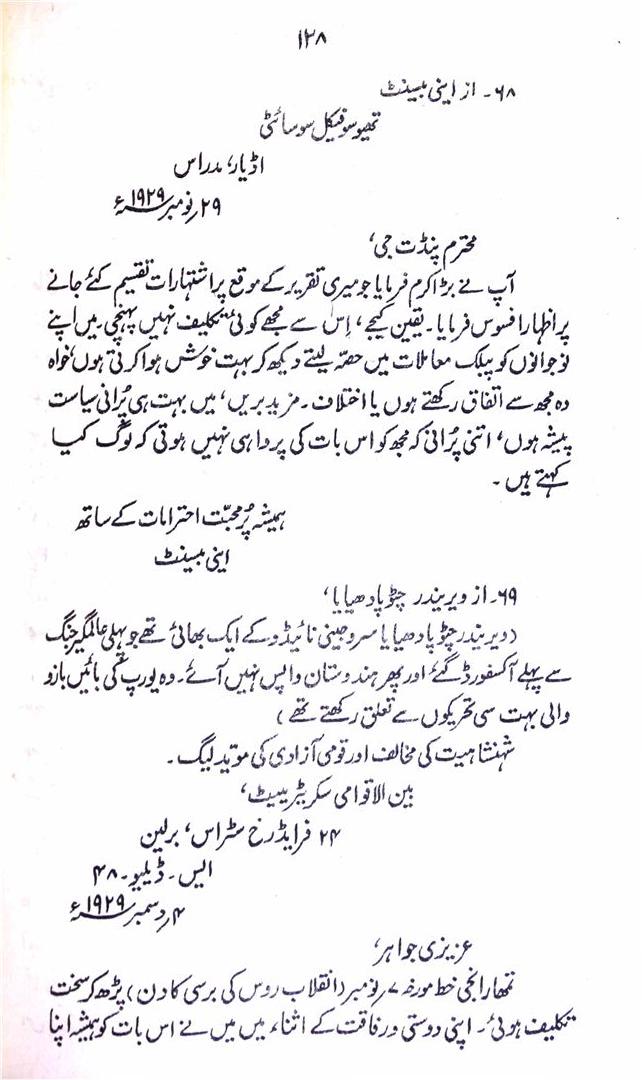 ۱۲۸
۶۸۔ از اینی بیسنٹ
تھیوسوفیکل سوسائٹی
اڈیار، مدراس
۲۹ر نومبر ۱۹۲۹ء
محترم پنڈت جی،
آپ نے بڑا کرم فرمایا جو میری تقریر کے موقع پر اشتہارات تقسیم کئے جانے
پر اظہار افسوس فرمایا۔ یقین کیجے، اِس سے مجھے کوئی تکلیف نہیں پہنچی۔ میں اپنے
نوجوانوں کو پبلک معاملات میں حصّہ لیتے دیکھ کر بہت خوش ہوا کرتی ہوں، خواہ
وہ مجھ سے اتفاق رکھتے ہوں یا اختلاف۔ مزید بریں، میں بہت ہی پُرانی سیاست
پیشہ ہوں، اتنی پُرانی کہ مجھ کو اس بات کی پروا ہی نہیں ہوتی کہ لوگ کیا
کہتے ہیں۔
ہمیشہ پُر محبّت احترامات کے ساتھ
اینی بیسنٹ
۶۹۔ از ویریندر چٹوپادھیایا،
(ویریندر چٹوپادھیایا سروجینی نائیڈو کے ایک بھائی تھے جو پہلی عالمگیر جنگ
سے پہلے آکسفورڈ گئے اور پھر ہندوستان واپس نہیں آئے۔ وہ یورپ کی بائیں بازو
والی بہت سی تحریکوں سے تعلق رکھتے تھے)
شہنشاہیت کی مخالف اور قومی آزادی کی موئد لیگ۔
بین الاقوامی سکریٹریٹ،
۲۴ فرایڈرخ سٹراس، برلین
ایس۔ ڈبلیو۔ ۴۸
۴ر دسمبر ۱۹۲۹ء
عزیزی جواہر،
تمہارا نجی خط مورخہ ۷ر نومبر (انقلاب روس کی برسی کا دن) پڑھ کر سخت
تکلیف ہوئی۔ اپنی دوستی و رفاقت کے اثناء میں میں نے اس بات کو ہمیشہ اپنا